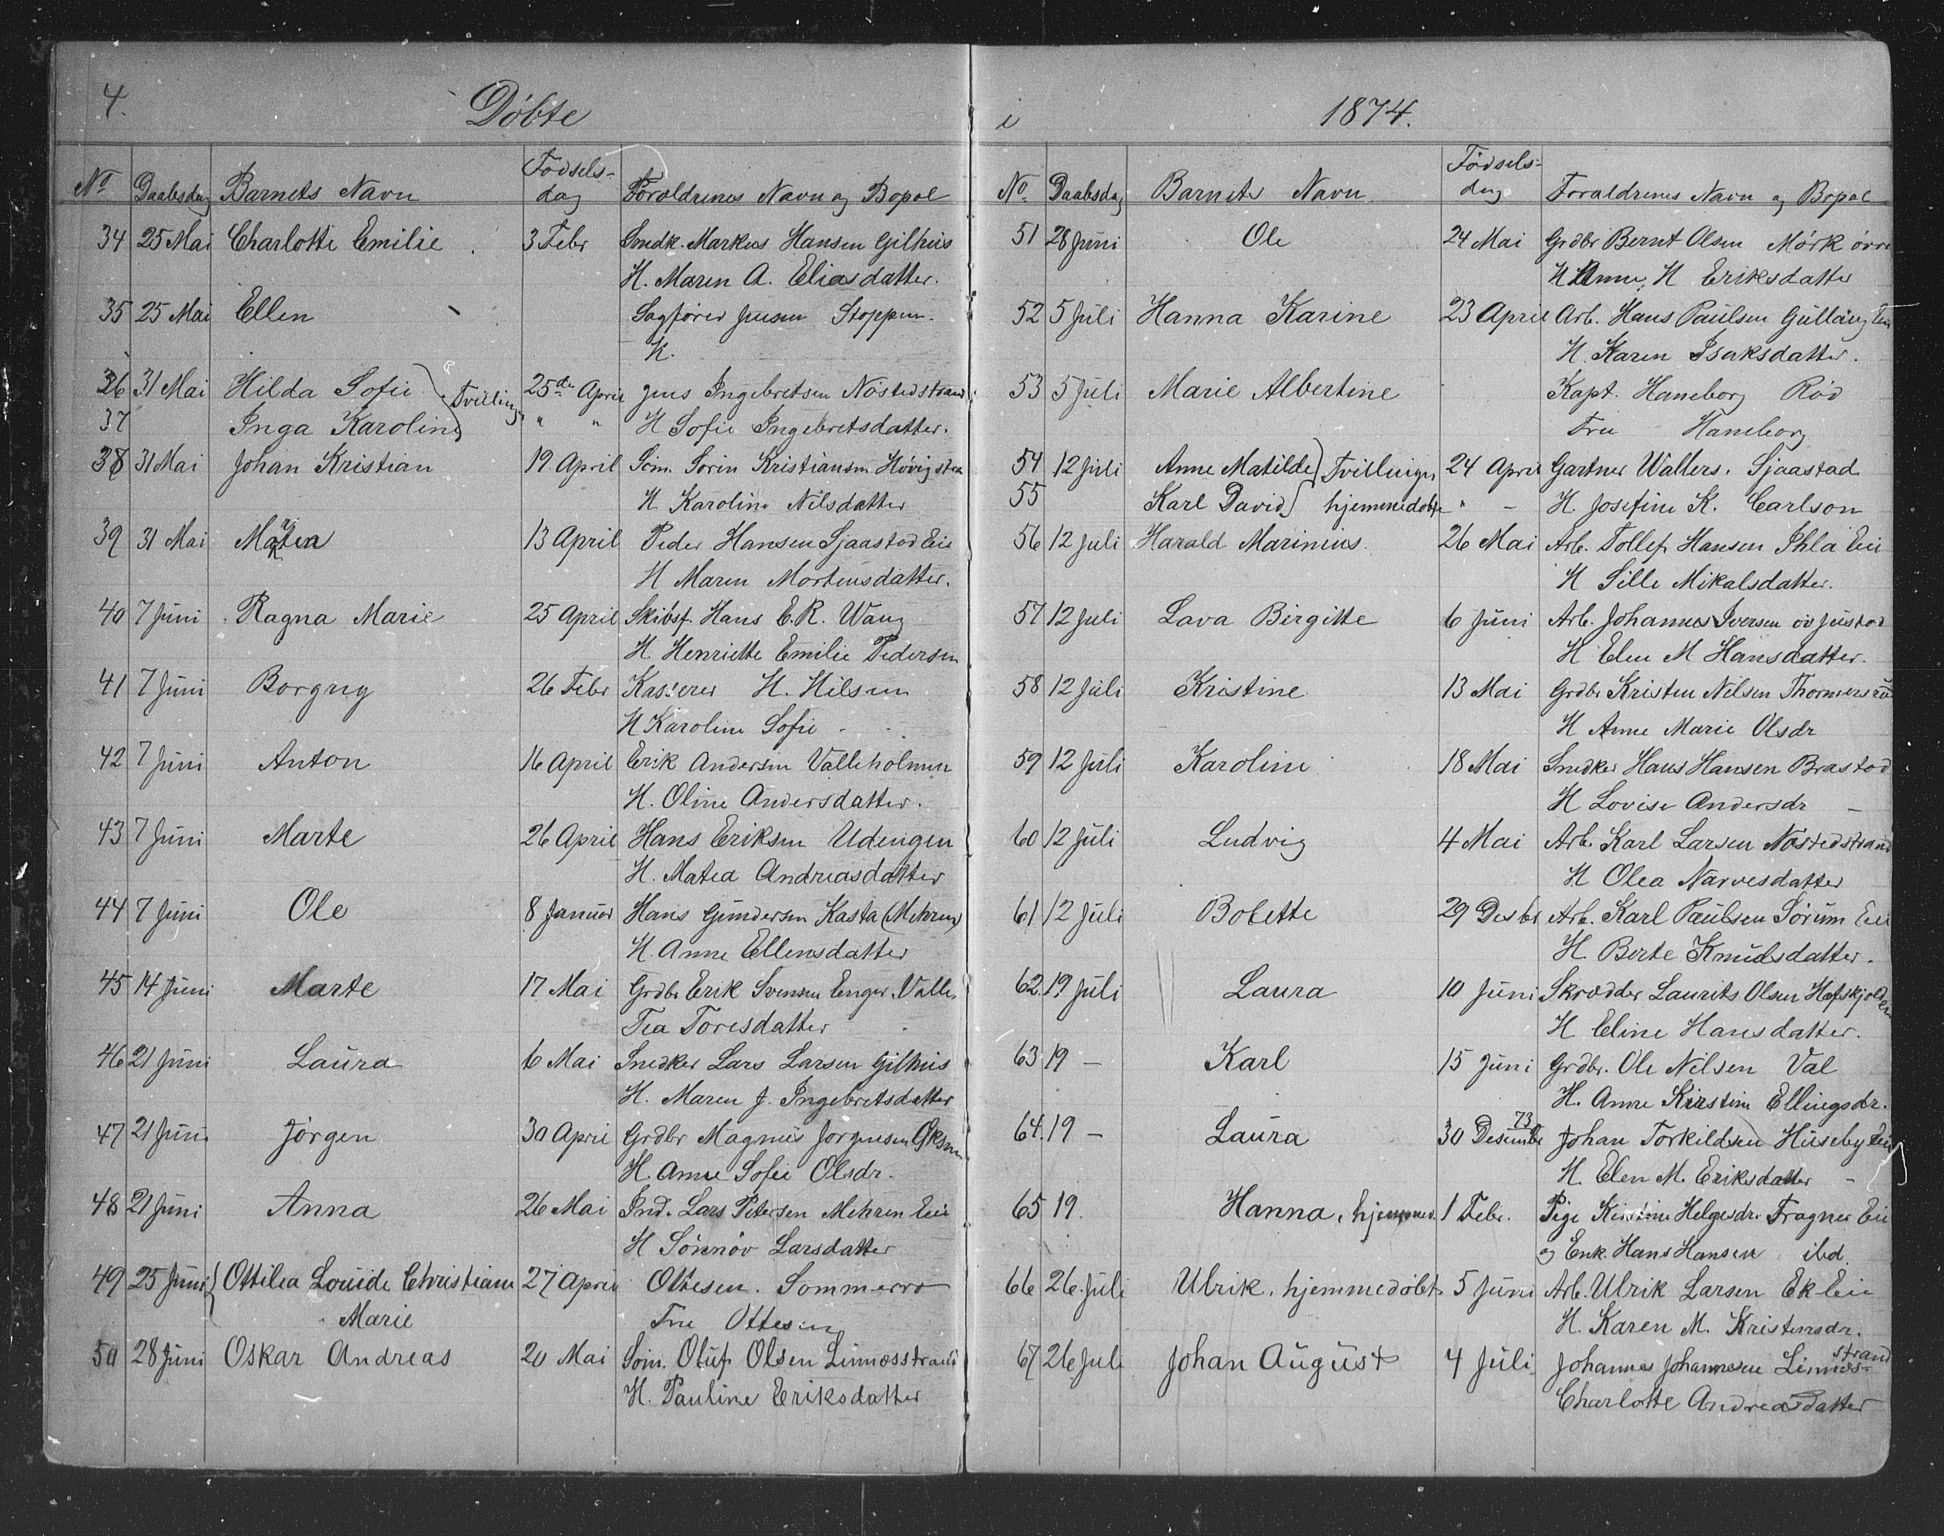 4. Döbte
No Daabsdag Barnets Navn Födsels-
dag Forældrenes Navn og Bopæl
34 25 Mai Charlotte Emilie 3 Febr Snedk. Markus Hansen Gilhus
H. Maren A. Eliasdatter.
35 25 Mai Ellen Sagförer Stoppen.
K.
36 31 Mai Hilda Sofie } Tvillinger 25de April Jens Ingebretsen Nöstedstrand
37 Inga Karoline " " H Sofie Ingebretsdatter.
38 31 Mai Johan Kristian 19 April Söm. Sörin Kristiansen
H Karoline Nilsdatter
39 31 Mai 13 April Peder Hansen Sjaastad Eie
H Maren Mortensdatter.
40 7 Juni Ragna Marie 25 April Skibsf. Hans E. R. Wang
H. Henriette Emilie Pedersen
41 7 Juni Borgny 26 Febr Kasserer H. Hilsen
H Karoline Sofie
42 7 Juni Anton 16 April Erik Andersen Valleholmen
H. Oline Andersdatter.
43 7 Juni Marte 26 April Hans Eriksen Udengen
H. Matea Andreasdatter
44 7 Juni Ole 8 Januar Hans Gundersen Kasta (Mehren)
H. Anne Ellensdatter
45 14 Juni Marte 17 Mai Grdbr Erik Svensen Enger Valle
Tea Toresdatter
46 21 Juni Laura 6 Mai Snedker Lars Larsen Gilhus
H. Maren J. Ingebretsdatter
47 21 Juni Jörgen 30 April Grdbr Magnus Jörgensen
H. Anne Sofie Olsdr.
48 21 Juni Anna 26 Mai Ind. Lars Petersen Mehren Eie
H Sönnöv Larsdatter
49 25 Juni { Ottilia Louide Christiane 27 April Ottesen. Sommerro
Marie Frue Ottesen
50 28 Juni Oskar Andreas 20 Mai Söm. Oluf Olsen Linnesstrand
H. Pauline Eriksdatter
i 1874.
No. Daabsdag Barnets Navn Födsels-
dag Forældrenes Navn og Bopæl
51 28 Juni Ole 24 Mai Grdbr Bernt Olsen Mörk övre
H Anne H Eriksdatter
52 5 Juli Hanna Karine 23 April Arb. Hans Paulsen Gullaug Eie
H. Karen Isaksdatter.
53 5 Juli Marie Albertine Kapt. Haneborg Röd
Frue Haneborg
54 12 Juli Anne Matilde } Tvillinger 24 April Gartner Wallers. Sjaastad
55 Karl David } hjemmedöbte " - H. Josefine K. Carlson
56 12 Juli Harald Marinius. 26 Mai Arb. Tollef Hansen Ihla Eie
H Sille Mikalsdatter.
57 12 Juli Lava Birgitte 6 Juni Arb. Johannes Iversen öv Justad
H Elen M Hansdatter.
58 12 Juli Kristine 13 Mai Grdbr Kristen Nilsen
H Anne Marie Olsdr
59 12 Juli Karoline 18 Mai Snedker Hans Hansen Brastad
H Lovise Andersdr -
60 12 Juli Ludvig 4 Mai Arb. Karl Larsen Nöstedstrand
H Olea Narvesdatter
61 12 Juli Bolette 29 Desbr Arb. Karl Paulsen Sörum Eie
H Berte Knudsdatter.
62. 19 Juli Laura 10 Juni Skrædder Laurits Olsen
H Eline Hansdatter.
63 19 - Karl 15 Juni Grdbr. Ole Nilsen Val
H. Anne Kirstine Ellingsdr.
64. 19 - Laura 30 Desember 73 Johan Torkildsen Huseby Eie
H. Elen M. Eriksdatter -
65 19. Hanna, hjemmed. 1 Febr. Pige Kirstine Helgesdr. Fragner Eie
og Enk. Hans Hansen ibd.
66 26. Juli Ulrik, hjemmedöbt 5 Juni Arb. Ulrik Larsen Ek Eie
H. Karen M. Kristensdr.
67 26 Juli Johan August 4 Juli Johannes Johannesen Linnes-
strand
Charlotte Andreasdatter